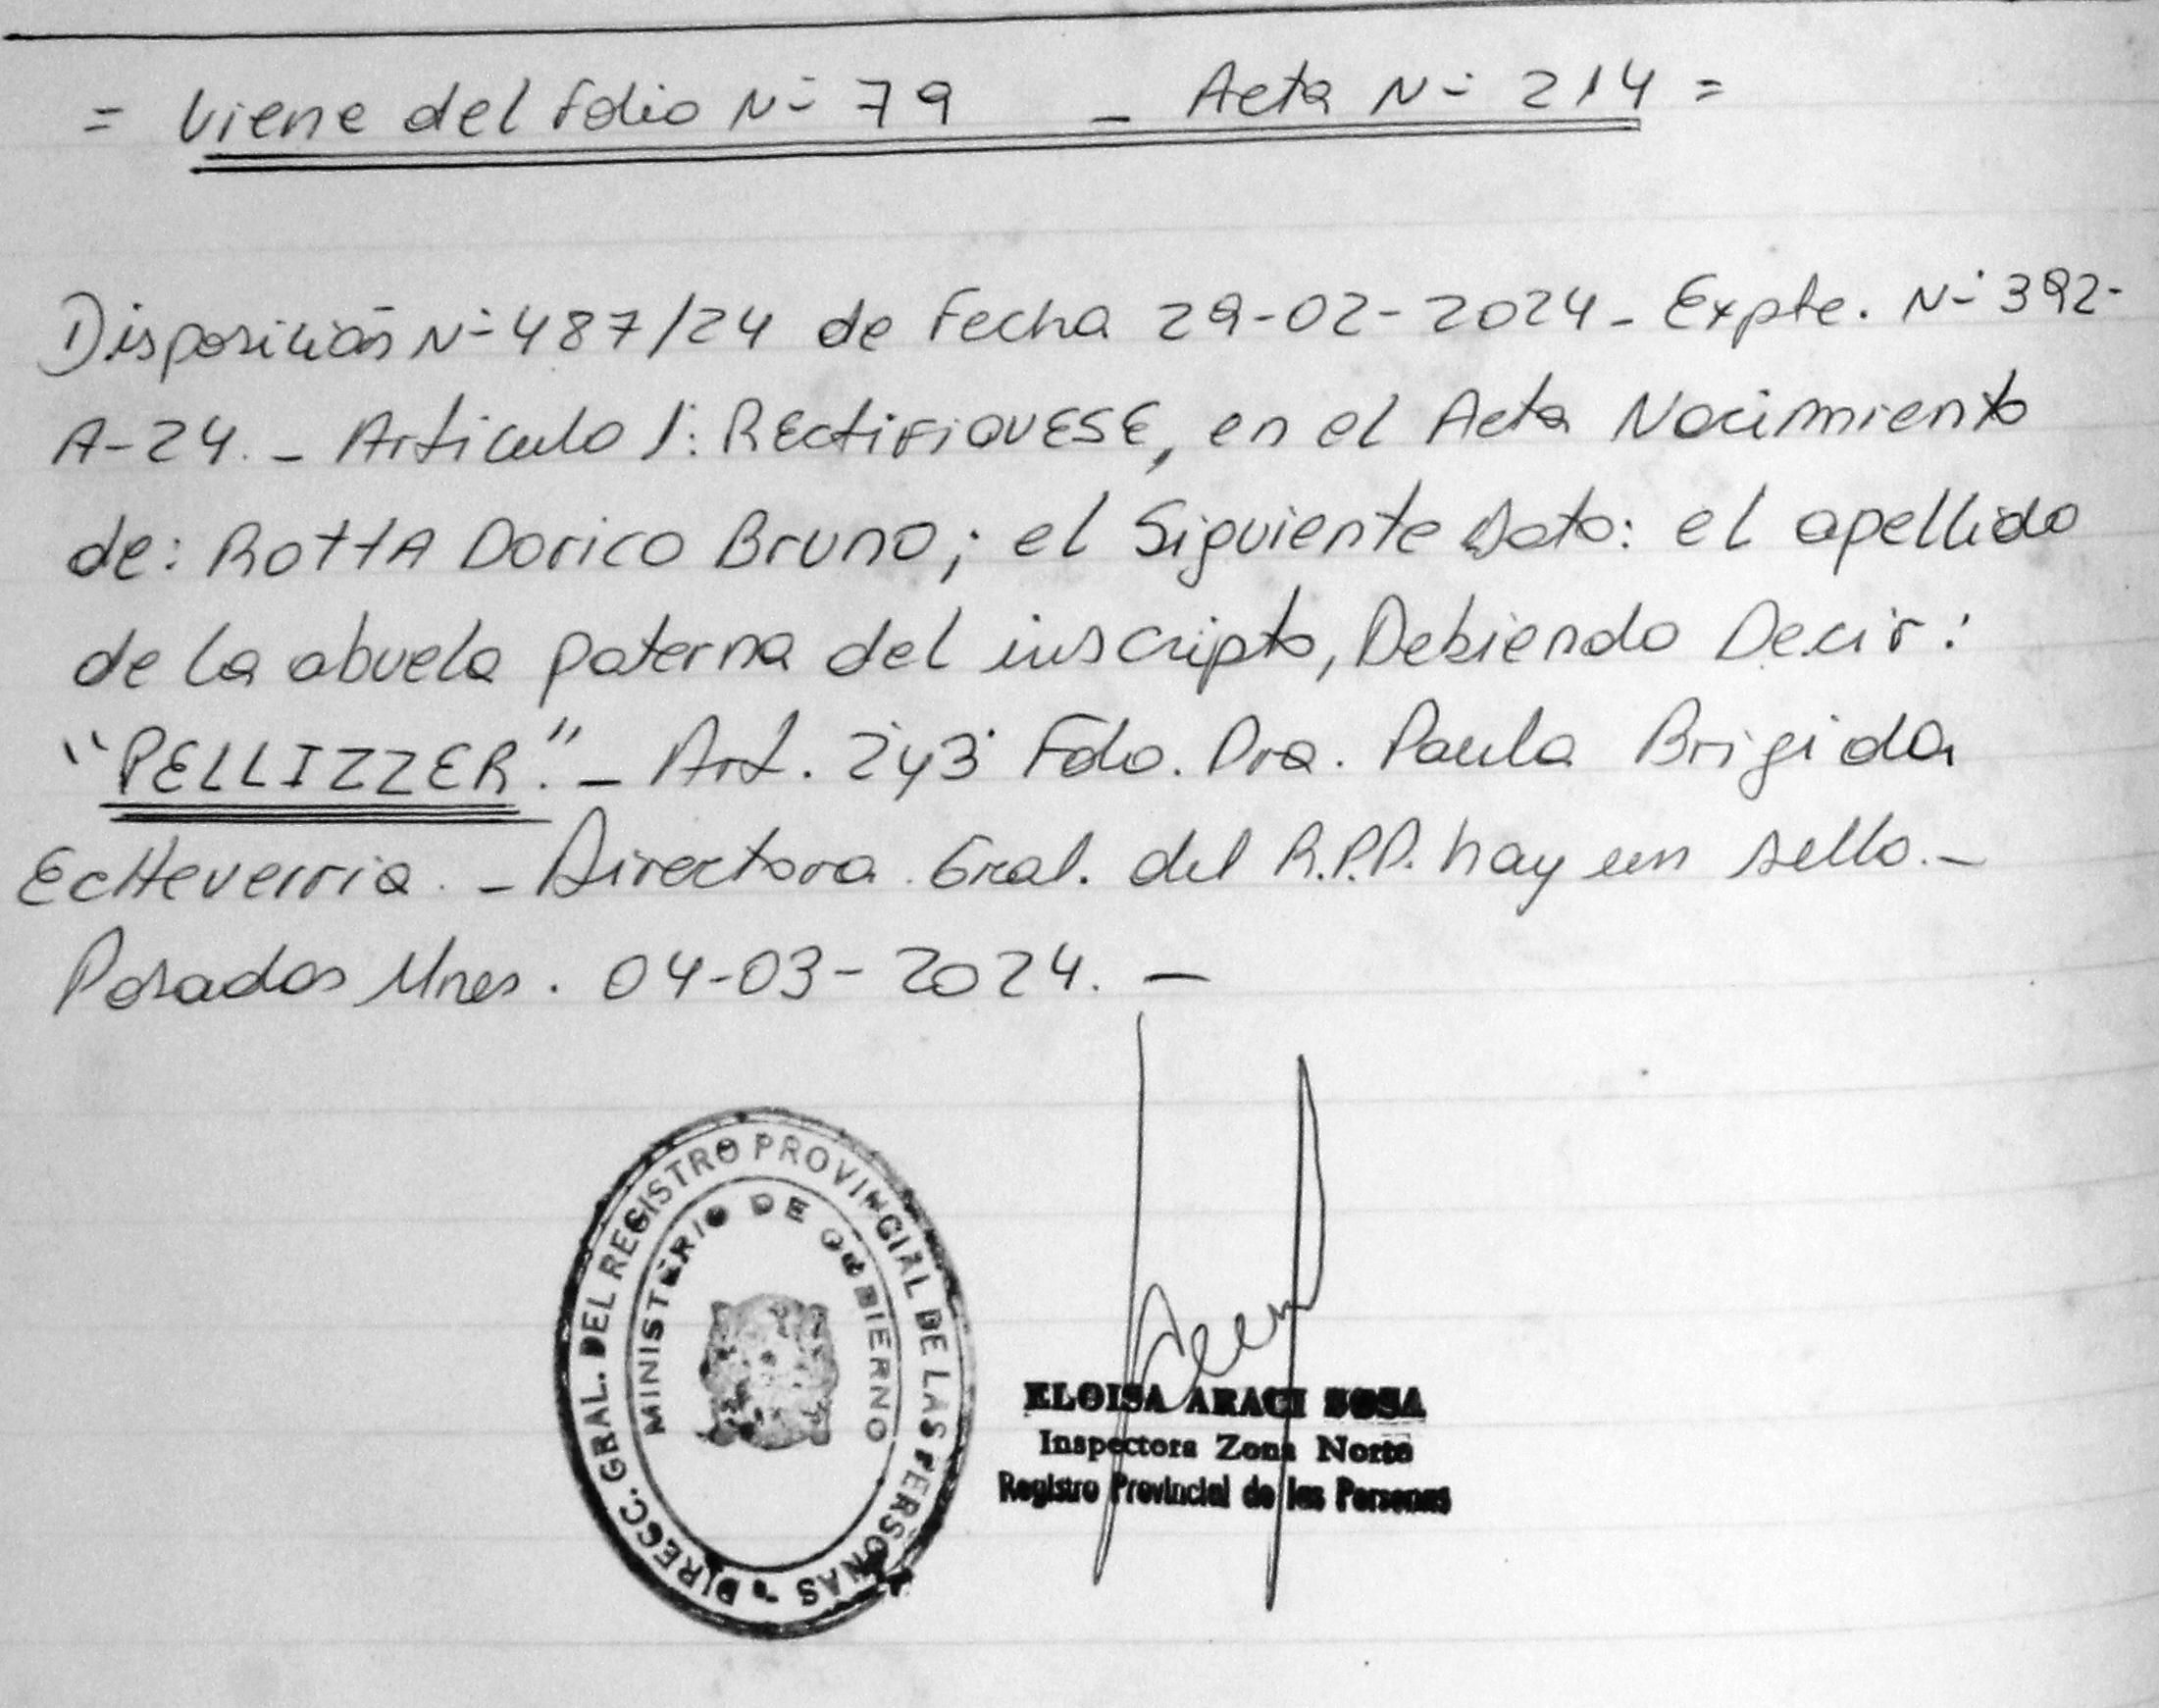 = Viene del folio N- 79 - Acta N- 214 =
Disposición N- 487/24 de Fecha 29-02-2024 - Expte. N- 392-
A-24. - Articulo 1: RECtiFiQUESE, en el Acta Nacimiento
de: RottA Dorico Bruno; el Siguiente Dato: el apellido
de la abuela paterna del inscripto, Debiendo Decir:
"PELLIZZER". - Art. 2y3 Fdo. Dra. Paula Brigida
EcHeverria. - Directora Gral. del R.P.P. hay un sello. -
Posadas Mnes. 04-03-2024. -
DIRECC. GRAL. DEL REGISTRO PROVINCIAL DE LAS PERSONAS
MINISTERIO DE GOBIERNO
ELOISA ARACI SOSA
Inspectora Zona Norte
Registro Provincial de las Personas